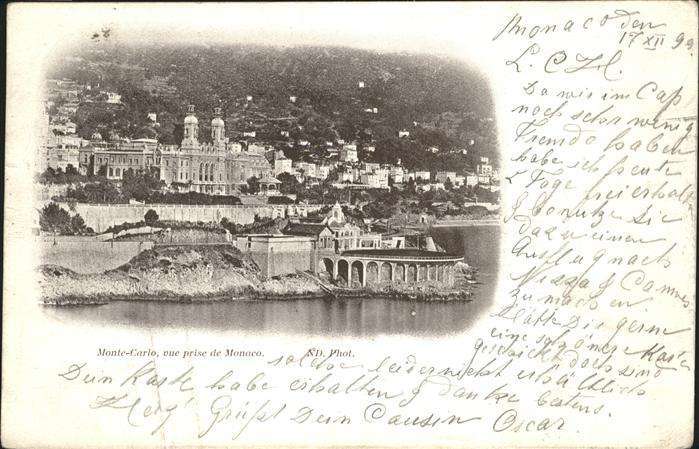 Monaco den
17 XII 99.
L. C
Da wir im Cap
noch sehr wenig
Fremde haben
habe ich heute
Tage frei erhalt.
& benutze sie
dazu einen
Ausflug nach
Nizza & Cannes
zu machen
Hätte Dir gern
eine schöner Karte
geschickt doch sind
solche leider nicht erhältlich
Monte-Carlo, vue prise de Monaco. ND. Phot.
Dein Karte habe erhalten & danke bestens.
Grüsst Dein Cousin Oscar.